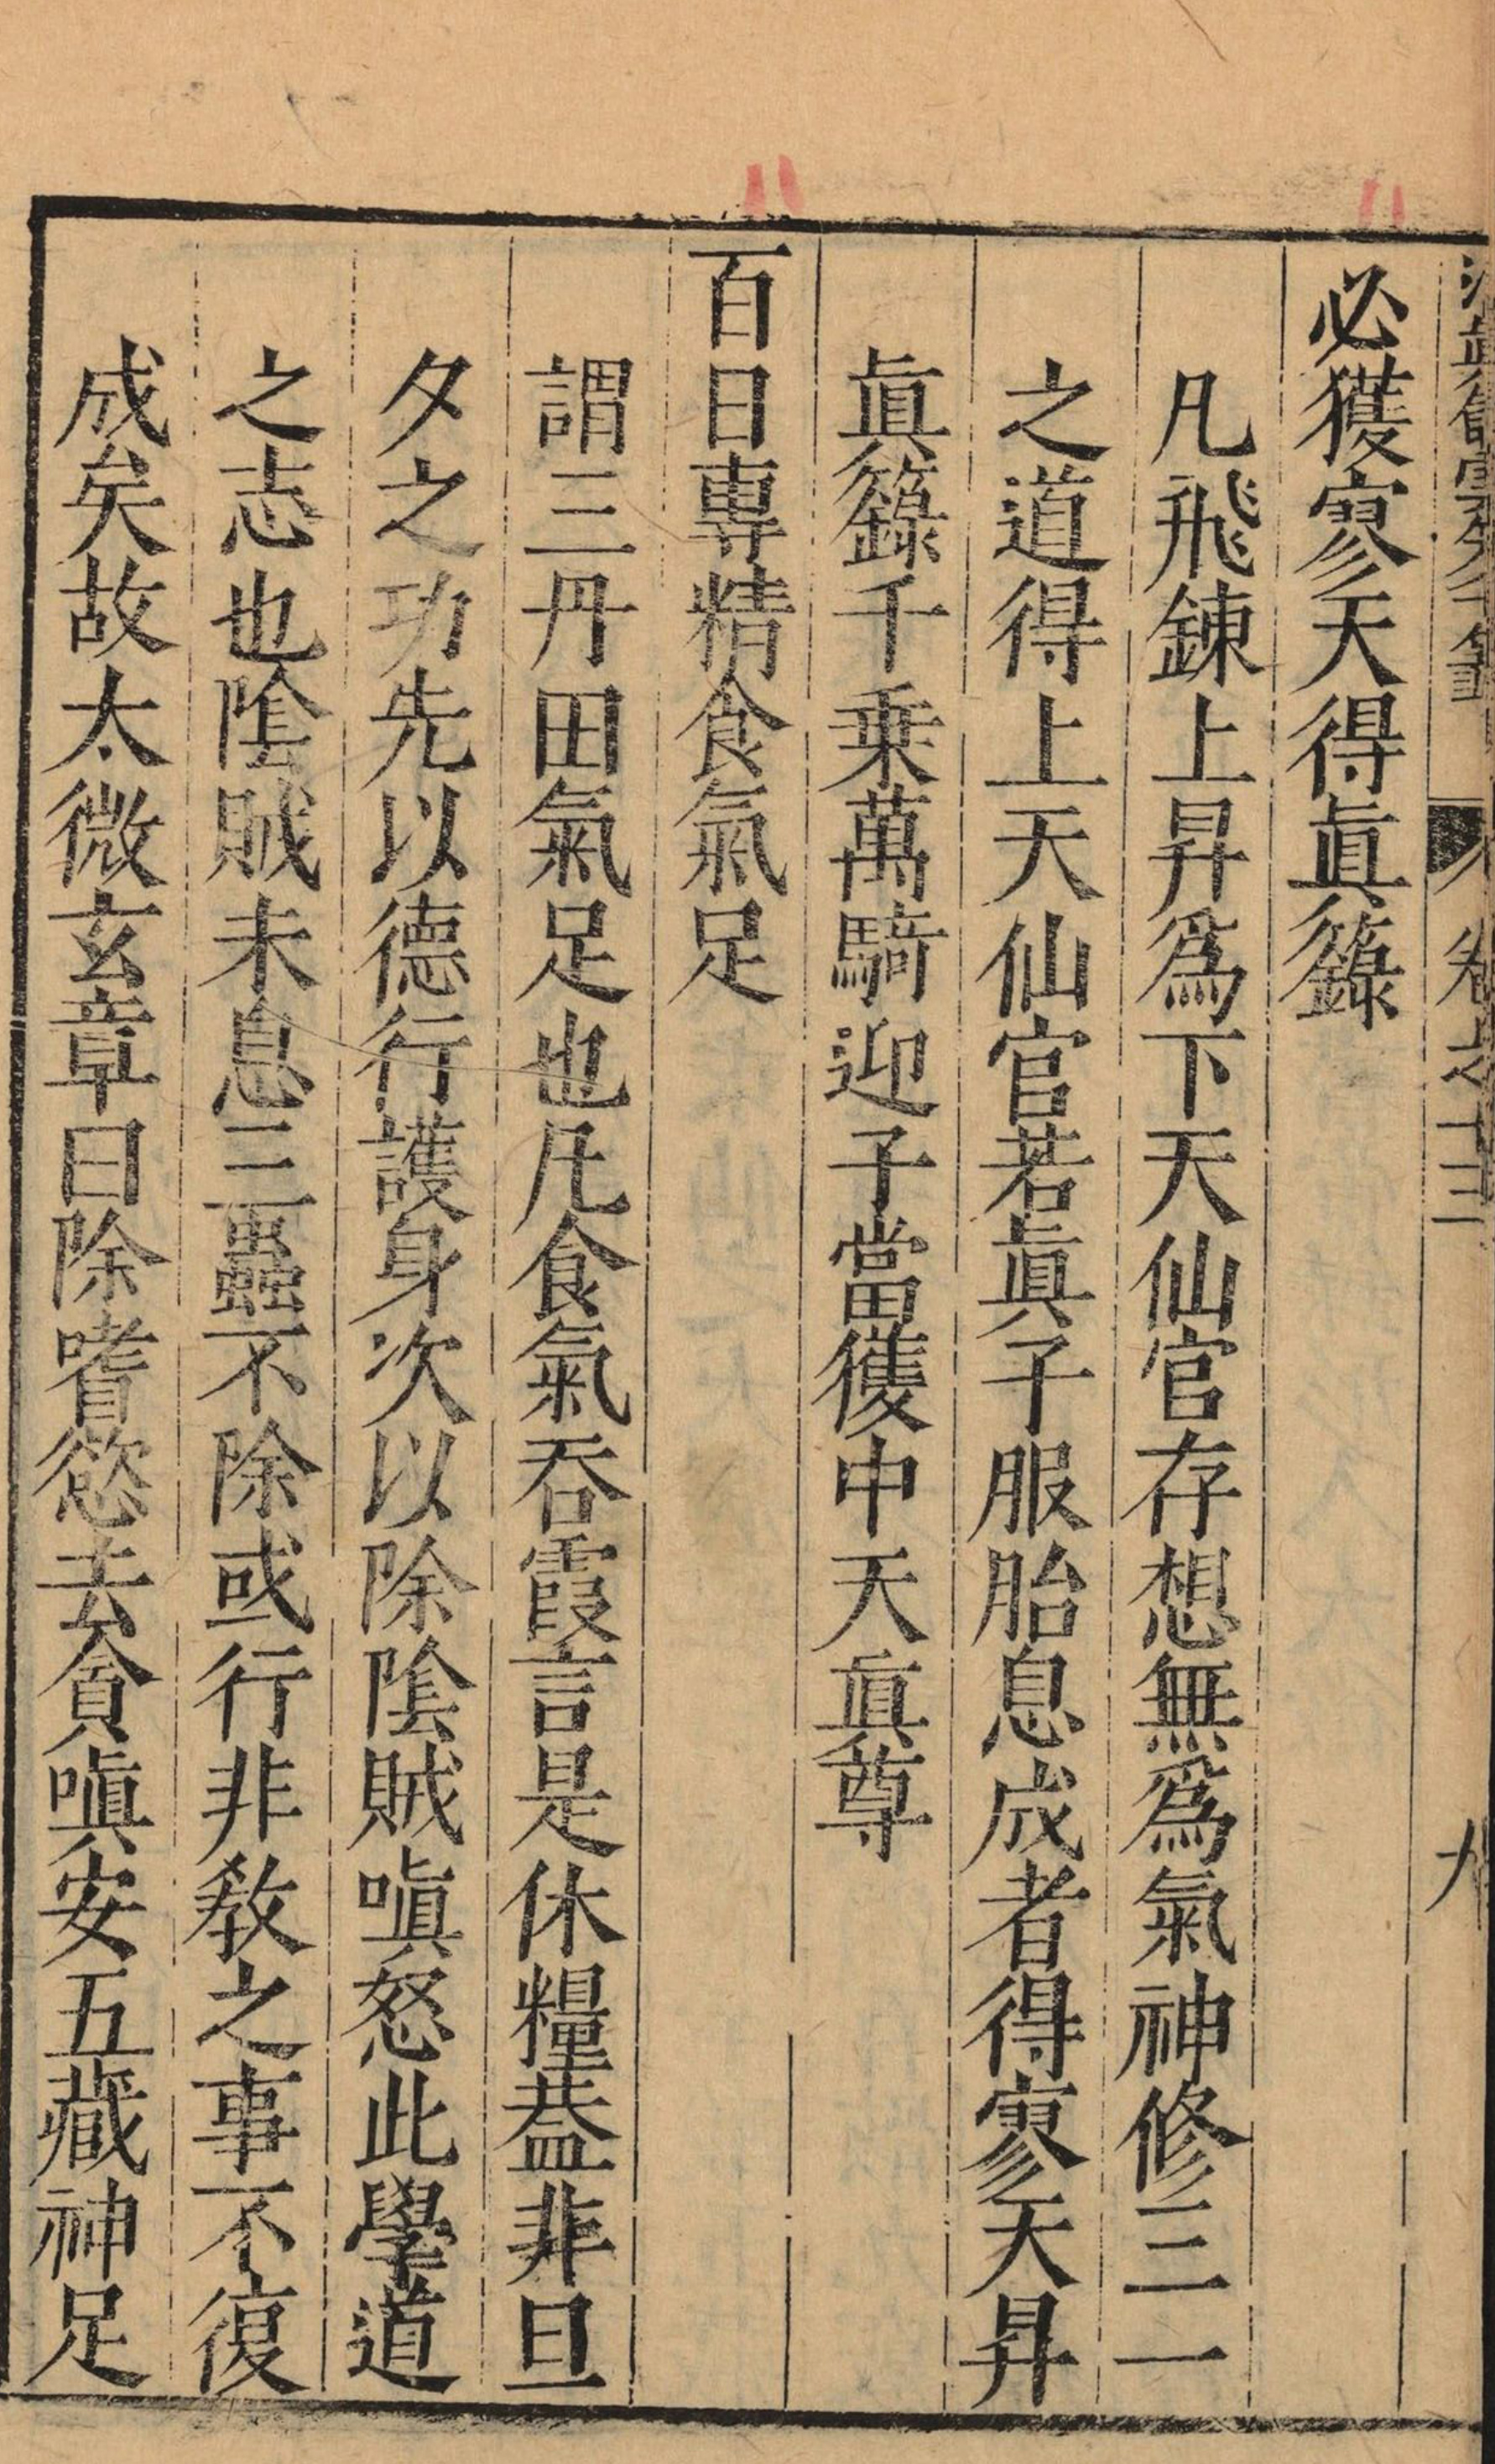 卷之十三
九
必獲寥天得眞籙
凡飛鍊上昇爲下天仙官存想無爲氣神修三一
之道得上天仙官若眞子服胎息成者得寥天昇
眞籙千乗萬騎迎子當獲中天眞尊
百日專精食氣足
謂三丹田氣足也凡食氣吞霞言是休糧葢非旦
夕之功先以德行護身次以除陰賊嗔怒此學道
之志也陰賊未息三蟲不除或行非教之事不復
成矣故太微玄章曰除嗜慾去貪嗔安五藏神足